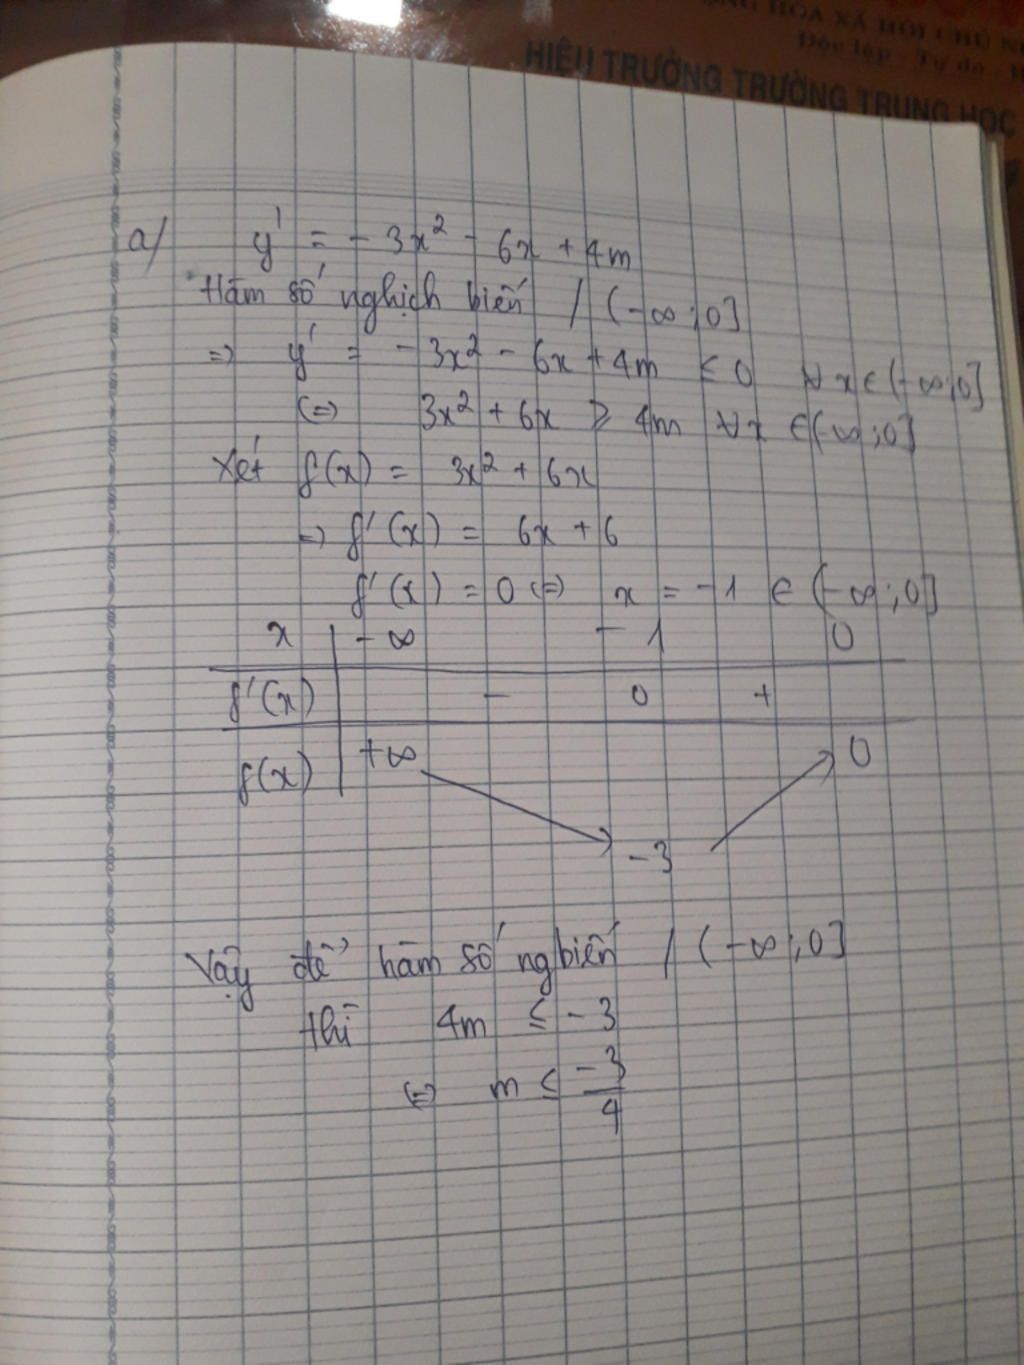 HÒA XÃ HỘI CHỦ
Độc lập - Tự do -
HIỆU TRƯỞNG TRƯỜNG TRUNG HỌC
a/ y' = - 3x² - 6x + 4m
Hàm số nghịch biến / (-∞;0]
=> y' = - 3x² - 6x + 4m ≤ 0 ∀x ∈ (-∞;0]
(=) 3x² + 6x ≥ 4m ∀x ∈ (-∞;0]
Xét f(x) = 3x² + 6x
=> f'(x) = 6x + 6
f'(x) = 0 (=) x = -1 ∈ (-∞;0]
x -∞ -1 0
f'(x) - 0 +
f(x) +∞ -3 0
Vậy để hàm số ngbiến / (-∞;0]
thì 4m ≤ -3
(=) m ≤ -3/4